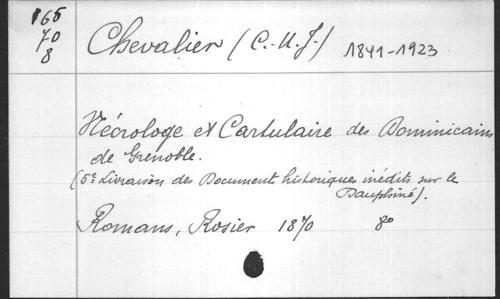 165
70
8
Chevalier (C.-U.-J.) 1841-1923
Nécrologe et Cartulaire des Dominicains
de Grenoble.
(5e Livraison des Documents historiques inédits sur le
Dauphiné).
Romans, Rosier 1870 8º